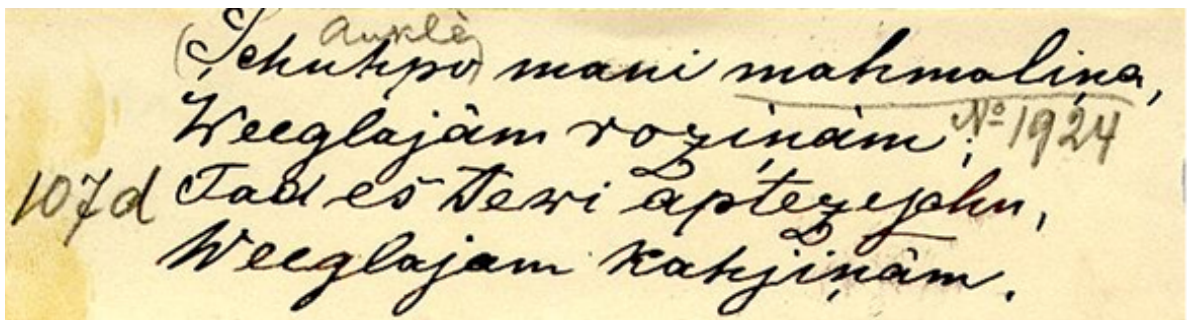 Auklê
(Schuhpo) mani mahmaliņa,
Weeglajâm roziņâm; № 1924
107d Tad eš Tewi aptezeschu,
Weeglajam kahjiņâm.